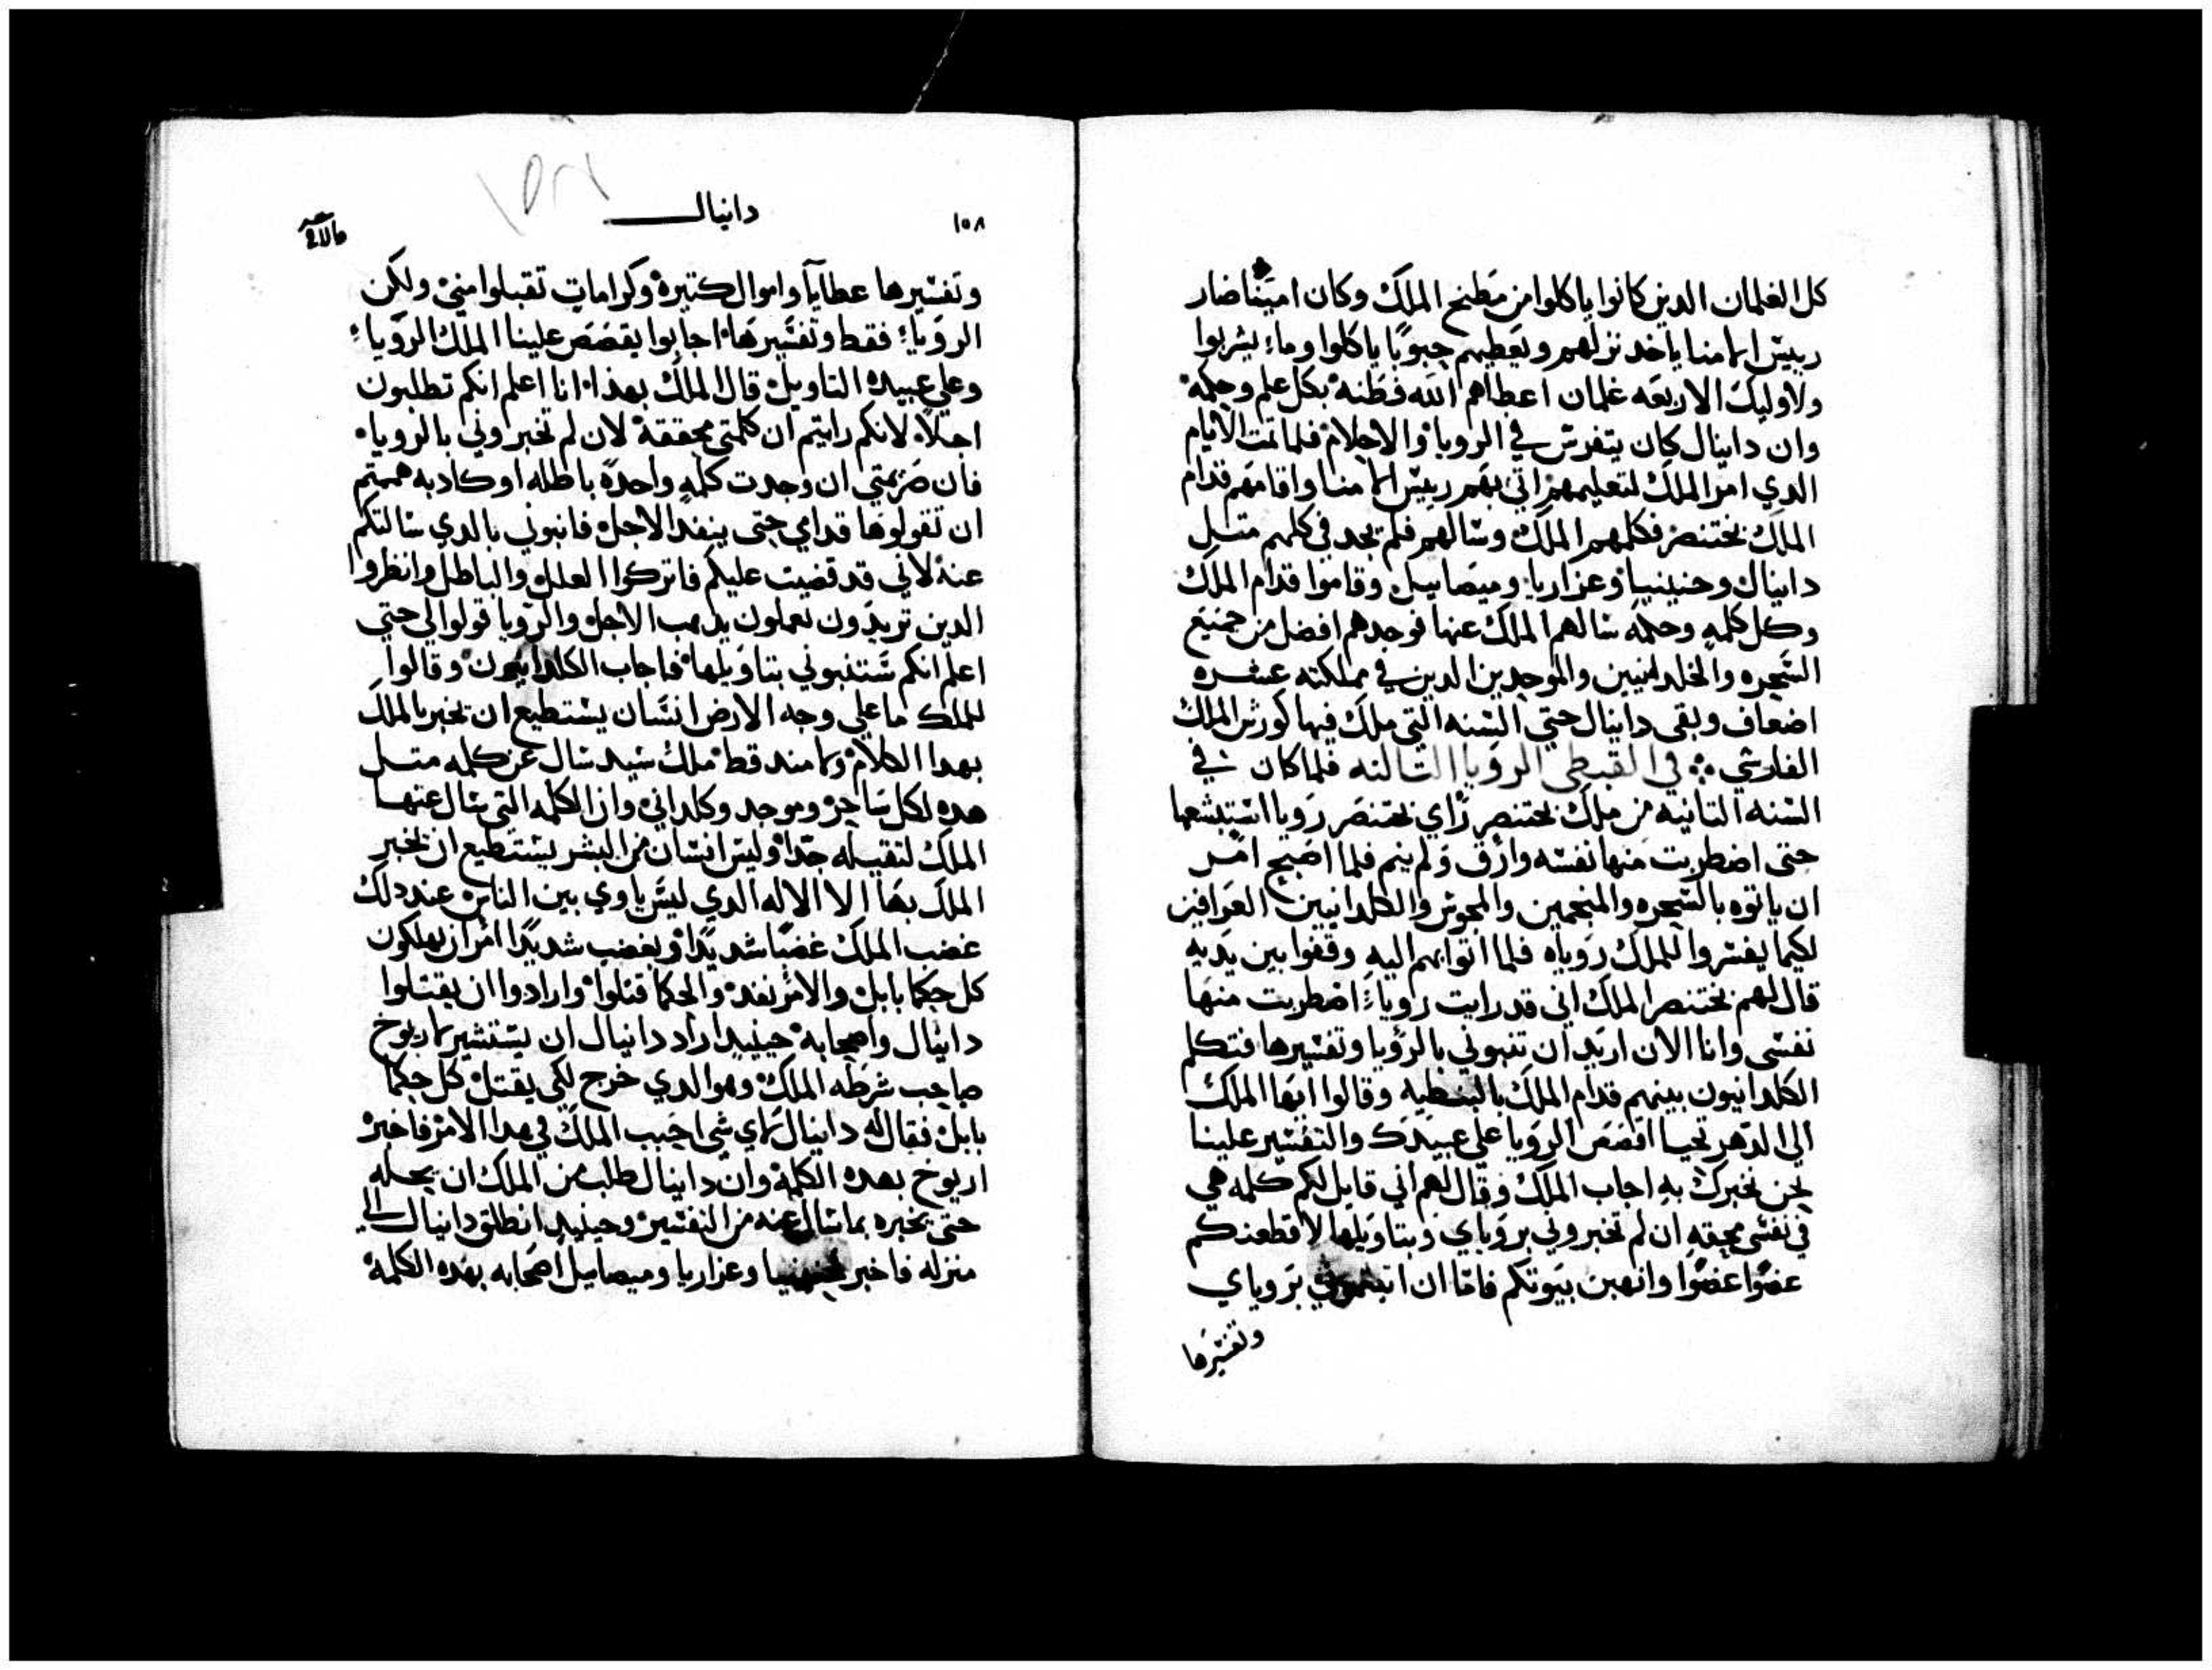 كل الغلمان الدين كانوا ياكلوا من مطبخ الملك وكان اميناصار
رييس الامنا ياخد نزلهم ويعطيهم حبوبًا ياكلوا وماء يشربوا
ولاوليك الاربعه غلمان اعطاهم الله فطنه بكل علم وحكمه
وان دانيال كان يتفرس في الرويا والاحلام فلما تمت الايام
الدي امر الملك لتعليمهم اتى بهم رييس الامنا واقامهم قدام
الملك بختنصر فكلمهم الملك وسالهم فلم يجد في كلهم متل
دانيال وحنينيا وعزاريا وميصاييل وقاموا قدام الملك
وكل كلمه وحكمه سالهم الملك عنها فوجدهم افضل من جميع
السحره والخلدانيين والموجدين الدين في مملكته عشره
اضعاف وبقى دانيال حتى السنه التي ملك فيها كورش الملك
الفارسي في القبطي الرويا التالته فلما كان في
السنه التانيه من ملك بختنصر راي بختنصر رويا استبشعها
حتى اضطربت منها نفسه وارق ولم ينم فلما اصبح امر
ان ياتوه بالسحره والمنجمين والمجوس والكلدانيين العرافين
لكيما يفسروا للملك روياه فلما اتوا بهم اليه وقفوا بين يديه
قال لهم بختنصر الملك اني قد رايت روياء اضطربت منها
نفسى وانا الان اريد ان تنبوني بالرويا وتفسيرها فتكلم
الكلدانيون بينهم قدام الملك بالنبطيه وقالوا ايها الملك
الى الدهر تحيا اقصص الرويا على عبيدك والتفسير علينا
نحن نخبرك به اجاب الملك وقال لهم اني قايل لكم كلمه هي
في نفسى محقه ان لم تخبروني بروياي وبتاويلها لاقطعنكم
عضوًا عضوًا وانهبن بيوتكم فاما ان بروياي
وتفسيرها
١٥٨
دانيال
وتفسيرها عطايا واموال كتيره وكرامات تقبلوا مني ولكن
الروياء فقط وتفسيرها اجابوا يقصص علينا الملك الروياء
وعلي عبيده التاويل قال الملك بهذا انا اعلم انكم تطلبون
اجلا لانكم رايتم ان كلمتي محققة لان لم تخبروني بالروياء
فان ضريمتي ان وجدت كلمه واحده باطله او كادبه هممتم
ان تقولوها قدامي حتى ينفد الاجل فانبوني بالدي سالتكم
عنه لاني قد قضيت عليكم فاتركوا العلل والباطل وانظروا
الدين تريدون تعملون يدهب الاجل والرويا قولوا لي حتي
اعلم انكم ستنبوني بتاويلها فاجاب الكلدانيون وقالوا
للملك ما علي وجه الارض انسان يستطيع ان يخبر بالملك
بهدا الكلام وما مند قط ملك سيد سال عن كلمه متل
هده لكل ساحر وموجد وكلداني وان الكلمه التي سال عنها
الملك لتقيله جدًا وليس انسان من البشر يستطيع ان يخبر
الملك بها الا الاله الدي ليس ياوي بين الناس عند دلك
غضب الملك غضبًا شديدًا وبغضب شديدًا امر ان يهلكون
كل حكما بابل والامر نفد والحكما قتلوا وارادوا ان يقتلوا
دانيال واصحابه حينيد اراد دانيال ان يستشير باريوخ
صاحب شرطه الملك وهو الدي خرج لكي يقتل كل حكما
بابل فقال له دانيال لاي شي احبب الملك في هدا الامر فاخبر
اريوخ بهده الكلمة وان دانيال طلب من الملك ان يجله
حتى يخبره بما سال عنه من التفسير وحينيد انطلق دانيال الي
منزله فاخبر وعزاريا وميصاييل اصحابه بهده الكلمة